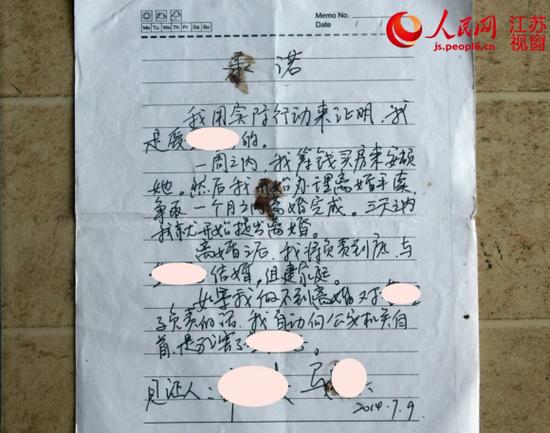 Memo No.
Mo Tu We Th Fr Sa Su
Date / /
人民网
js.people.cn
江苏
视窗
承诺
我用实际行动来证明，我
是爱 的。
一周之内，我筹钱买房来安顿
她。然后我开始办理离婚手续，
争取一个月之内离婚完成。三天之内
我就开始提出离婚。
离婚之后，我将负责到底，与
结婚，组建家庭。
如果我做不到离婚对
负责的话，我自动向公安机关自
首，是我害了 。
见证人：
2014.7.9